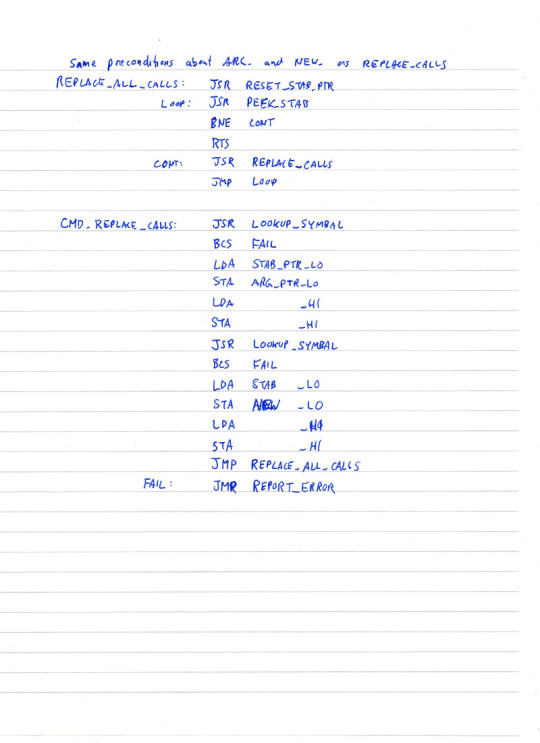 Same preconditions about ARG_ and NEW_ as REPLACE_CALLS
REPLACE_ALL_CALLS: JSR RESET_STAB_PTR
LOOP: JSR PEEK_STAB
BNE CONT
RTS
CONT: JSR REPLACE_CALLS
JMP LOOP
CMD_REPLACE_CALLS: JSR LOOKUP_SYMBAL
BCS FAIL
LDA STAB_PTR_LO
STA ARG_PTR_LO
LDA _HI
STA _HI
JSR LOOKUP_SYMBAL
BCS FAIL
LDA STAB _LO
STA NEW _LO
LDA _HI
STA _HI
JMP REPLACE_ALL_CALLS
FAIL: JMP REPORT_ERROR